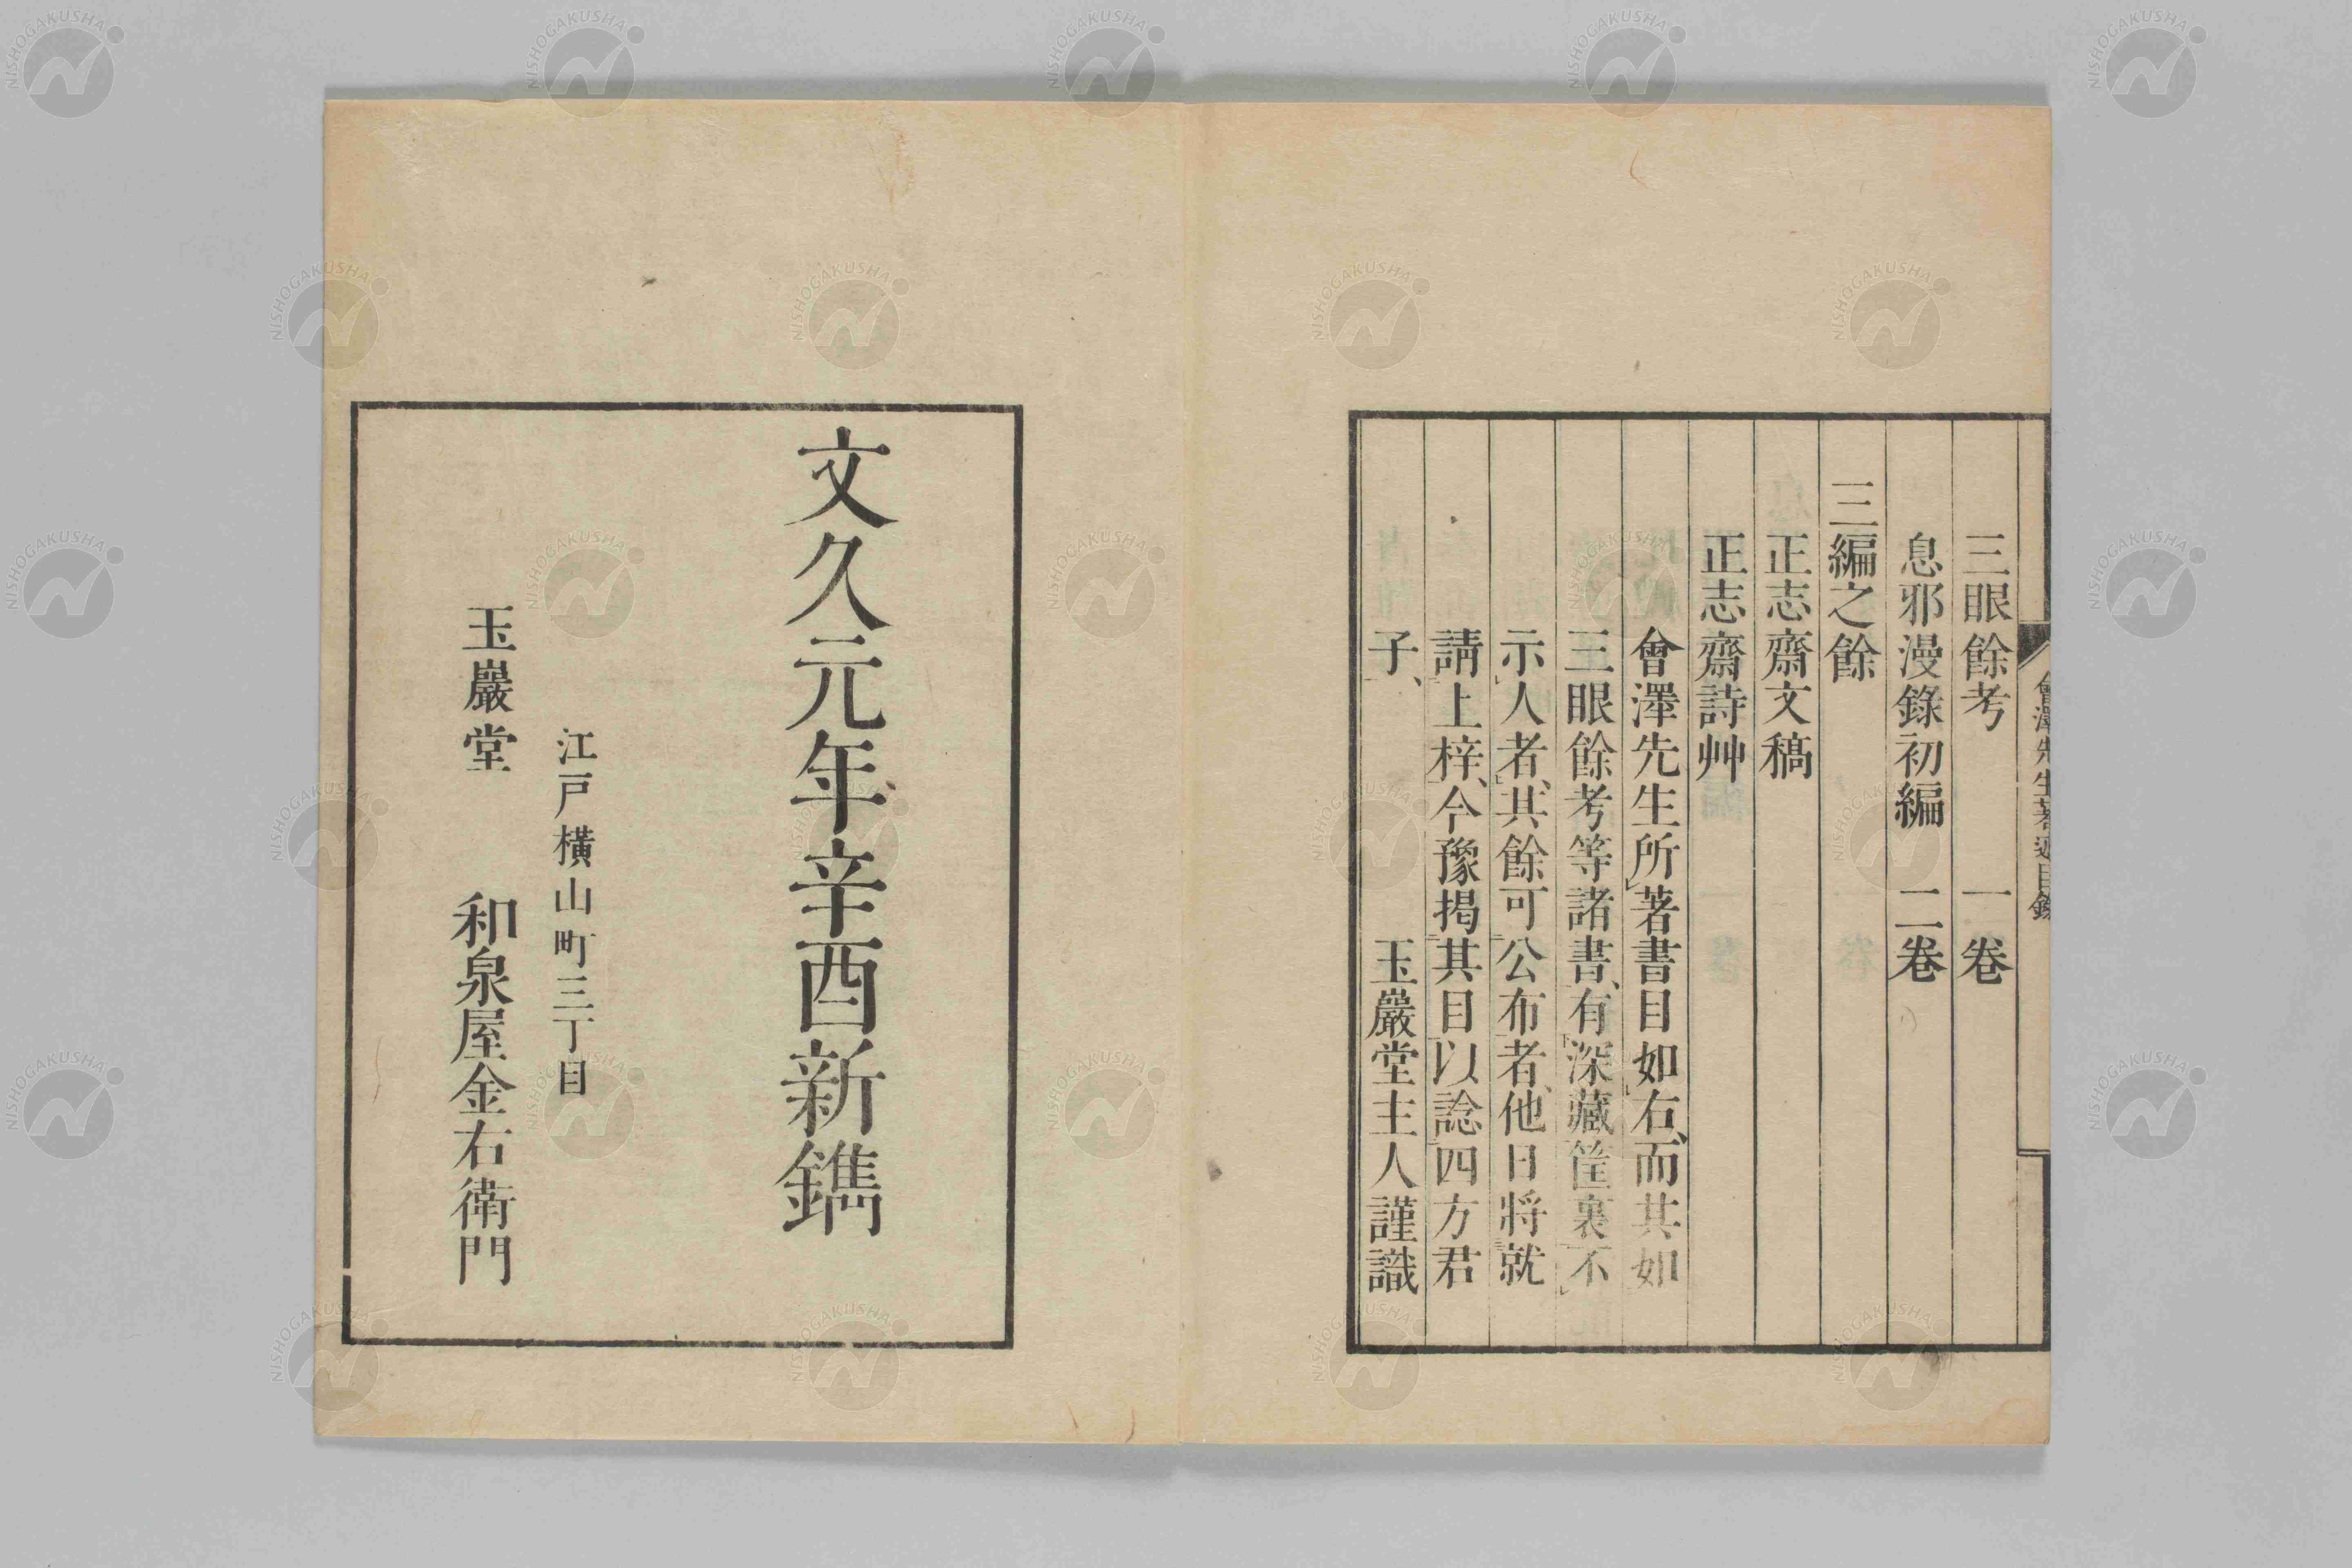 會澤先生著述目錄
三眼餘考 一卷
息邪漫錄初編 二卷
三編之餘
正志齋文稿
正志齋詩艸
會澤先生所著書目如右、而其如
三眼餘考等諸書、有深藏筐裏不
示人者、其餘可公布者、他日將就
請上梓、今豫揭其目以諗四方君
子、 玉巖堂主人謹識
文久元年辛酉新鐫
江戸橫山町三丁目
玉巖堂 和泉屋金右衛門
NISHOGAKUSHA